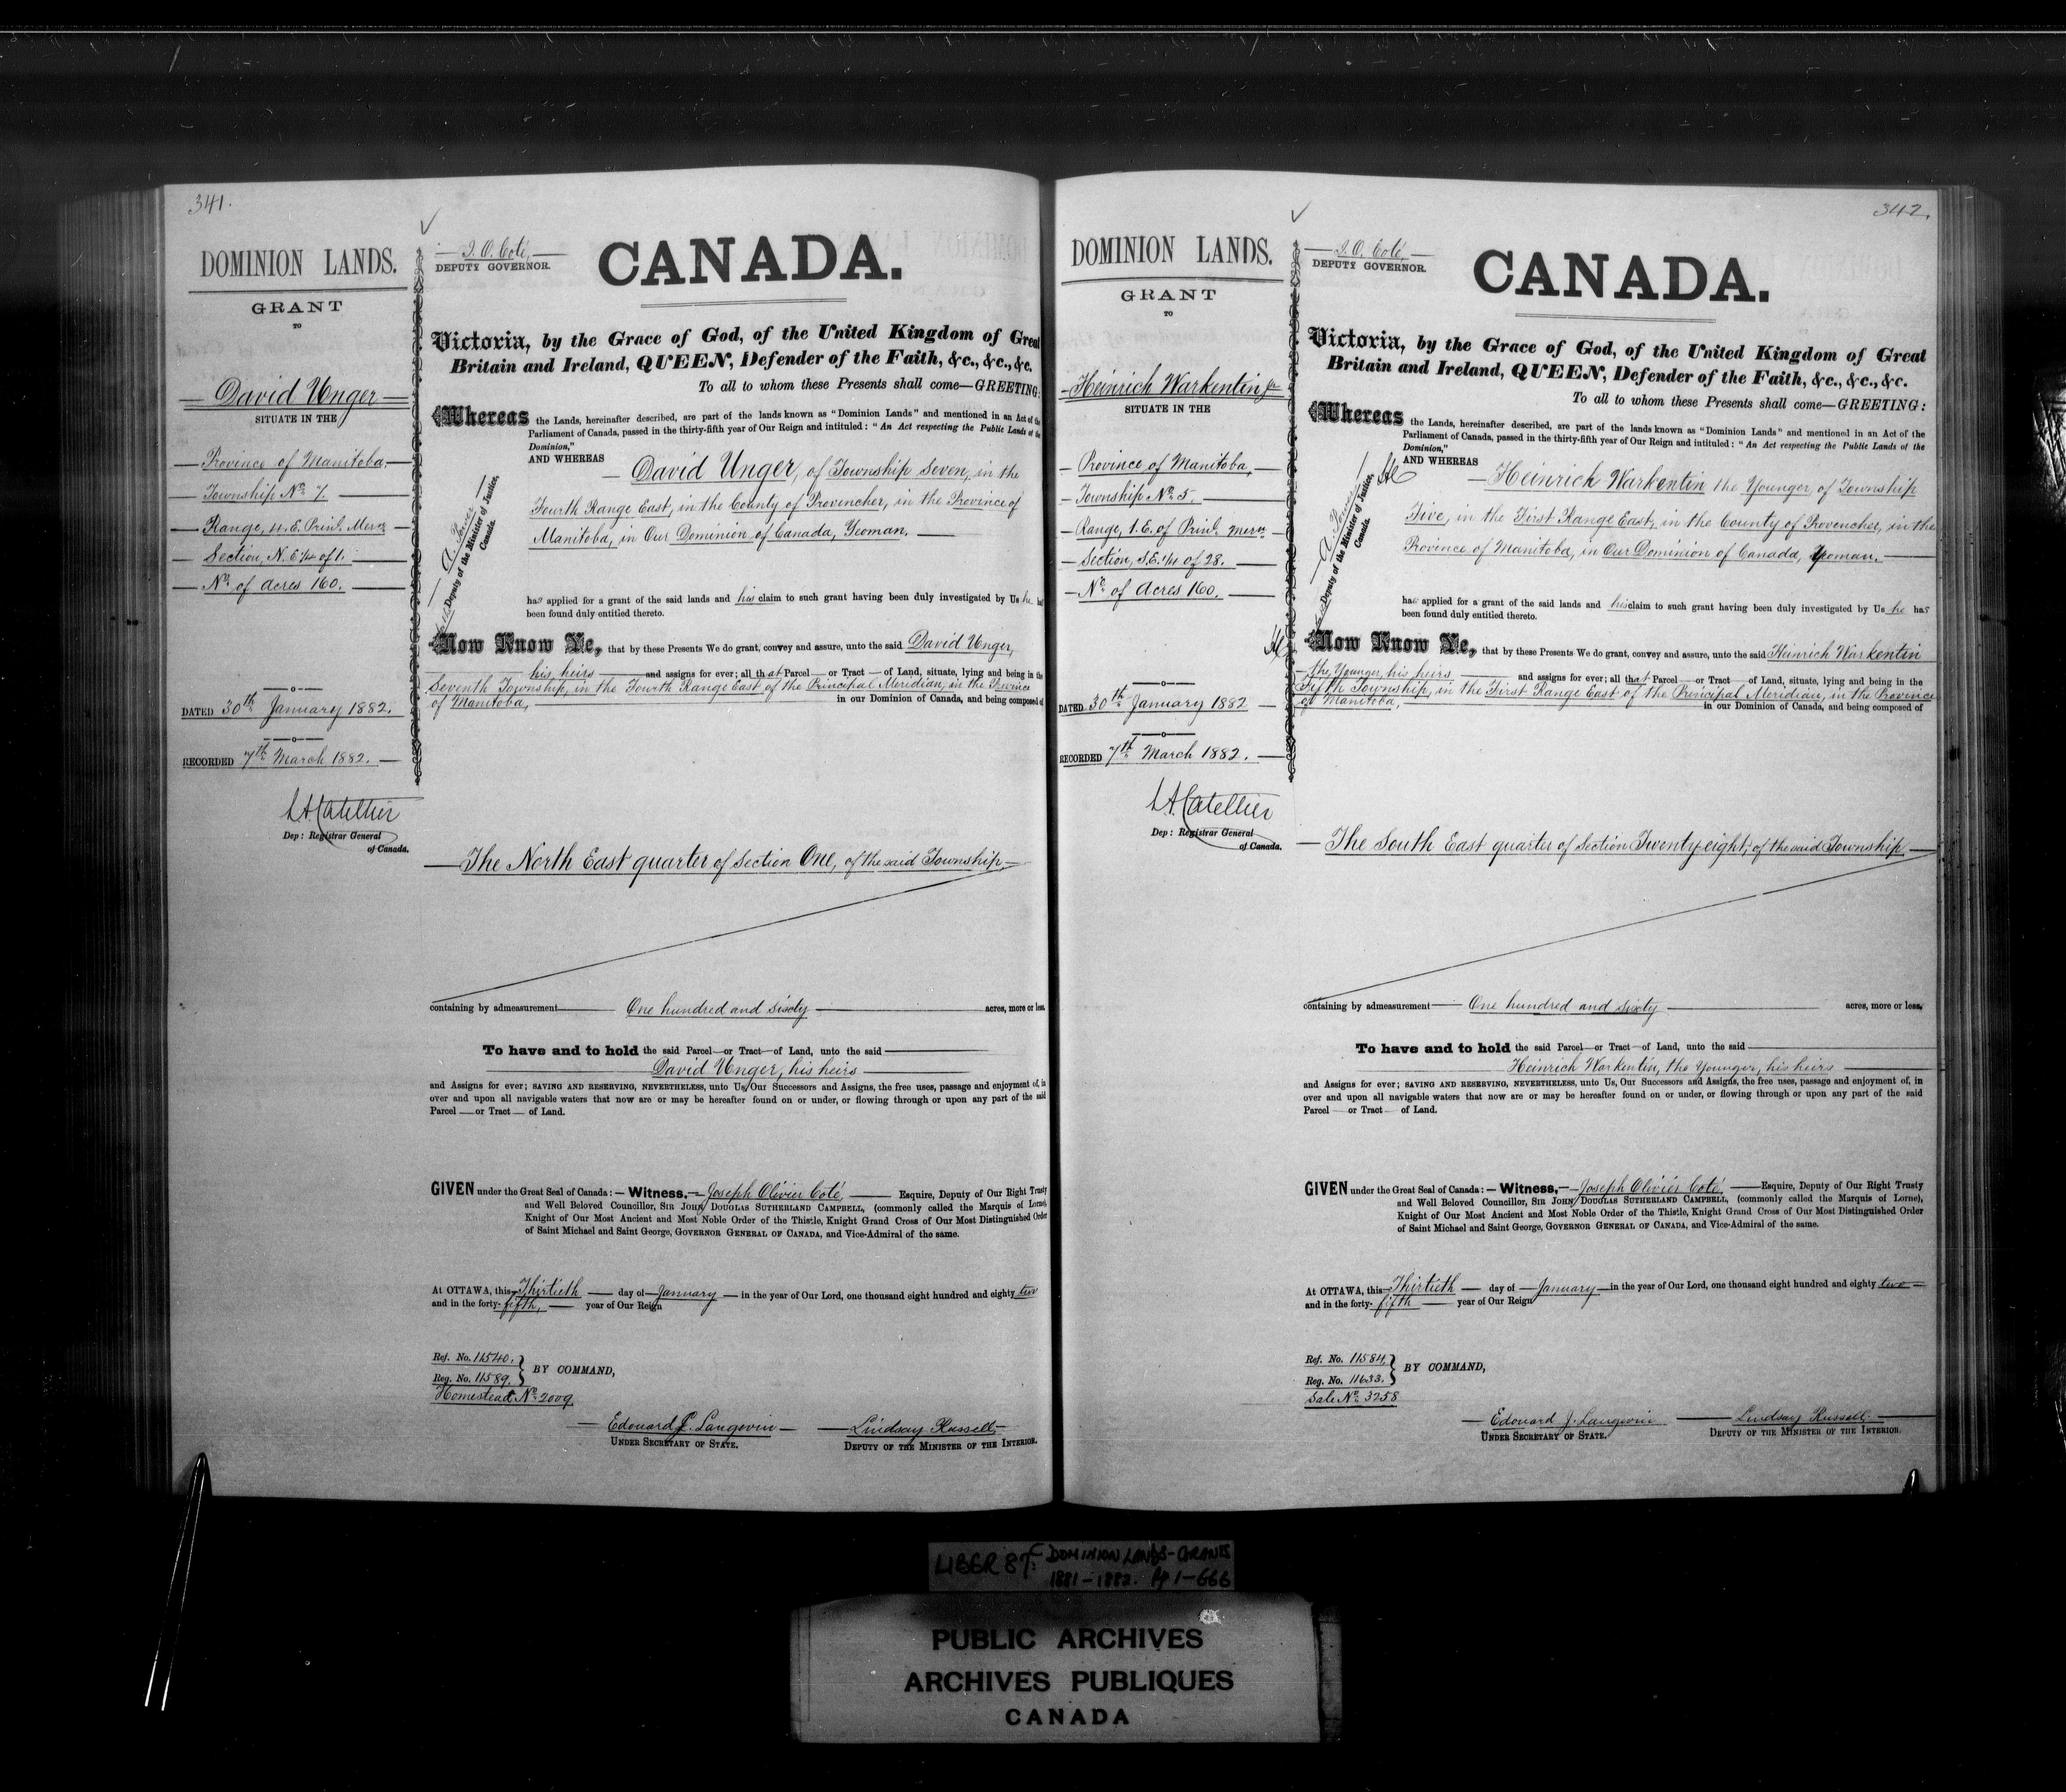 341.
DOMINION LANDS.
GRANT
TO
David Unger
SITUATE IN THE
Province of Manitoba.
Township No. 7.
Range, 4. E. Prinl. Mern
Section, N. E 1/4 of 1.
No. of Acres 160.
DATED 30th January 1882.
RECORDED 7th March 1882.
L.A. Catellier
Dep: Registrar General
of Canada.
J. O. Coté,
DEPUTY GOVERNOR.
CANADA.
Victoria, by the Grace of God, of the United Kingdom of Great
Britain and Ireland, QUEEN, Defender of the Faith, &c., &c., &c.
To all to whom these Presents shall come—GREETING:
Whereas the Lands, hereinafter described, are part of the lands known as "Dominion Lands" and mentioned in an Act of the
Parliament of Canada, passed in the thirty-fifth year of Our Reign and intituled: "An Act respecting the Public Lands of the
Dominion,"
AND WHEREAS David Unger, of Township Seven, in the
Fourth Range East, in the County of Provencher, in the Province of
Manitoba, in Our Dominion of Canada, Yeoman.
A. Power
Deputy of the Minister of Justice,
Canada.
has applied for a grant of the said lands and his claim to such grant having been duly investigated by Us he has
been found duly entitled thereto.
Now Know Ye, that by these Presents We do grant, convey and assure, unto the said David Unger,
his heirs and assigns for ever; all that Parcel or Tract of Land, situate, lying and being in the
Seventh Township, in the Fourth Range East of the Principal Meridian, in the Province
of Manitoba, in our Dominion of Canada, and being composed of
The North East quarter of Section One, of the said Township
containing by admeasurement One hundred and sixty acres, more or less.
To have and to hold the said Parcel or Tract of Land, unto the said
David Unger, his heirs
and Assigns for ever; SAVING AND RESERVING, NEVERTHELESS, unto Us, Our Successors and Assigns, the free uses, passage and enjoyment of, in
over and upon all navigable waters that now are or may be hereafter found on or under, or flowing through or upon any part of the said
Parcel or Tract of Land.
GIVEN under the Great Seal of Canada:—Witness, Joseph Olivier Coté, Esquire, Deputy of Our Right Trusty
and Well Beloved Councillor, SIR JOHN DOUGLAS SUTHERLAND CAMPBELL, (commonly called the Marquis of Lorne),
Knight of Our Most Ancient and Most Noble Order of the Thistle, Knight Grand Cross of Our Most Distinguished Order
of Saint Michael and Saint George, GOVERNOR GENERAL OF CANADA, and Vice-Admiral of the same.
At OTTAWA, this Thirtieth day of January in the year of Our Lord, one thousand eight hundred and eighty two
and in the forty-fifth, year of Our Reign
Ref. No. 11540.
Reg. No. 11589.
BY COMMAND,
Homestead No. 2009.
Edouard J. Langevin
UNDER SECRETARY OF STATE.
Lindsay Russell,
DEPUTY OF THE MINISTER OF THE INTERIOR.
342.
DOMINION LANDS.
GRANT
TO
Heinrich Warkentin jr
SITUATE IN THE
Province of Manitoba,
Township No. 5.
Range, 1. E. of Prinl. Mern.
Section, S.E. 1/4 of 28.
No. of Acres 160.
DATED 30th January 1882
RECORDED 7th March 1882.
L.A. Catellier
Dep: Registrar General
of Canada.
J. O. Coté,
DEPUTY GOVERNOR.
CANADA.
Victoria, by the Grace of God, of the United Kingdom of Great
Britain and Ireland, QUEEN, Defender of the Faith, &c., &c., &c.
To all to whom these Presents shall come—GREETING:
Whereas the Lands, hereinafter described, are part of the lands known as "Dominion Lands" and mentioned in an Act of the
Parliament of Canada, passed in the thirty-fifth year of Our Reign and intituled: "An Act respecting the Public Lands of the
Dominion,"
AND WHEREAS Heinrich Warkentin the Younger, of Township
Five, in the First Range East, in the County of Provencher, in the
Province of Manitoba, in Our Dominion of Canada, Yeoman.
A. Power
Deputy of the Minister of Justice,
Canada.
has applied for a grant of the said lands and his claim to such grant having been duly investigated by Us he has
been found duly entitled thereto.
Now Know Ye, that by these Presents We do grant, convey and assure, unto the said Heinrich Warkentin
the Younger, his heirs and assigns for ever; all that Parcel or Tract of Land, situate, lying and being in the
Fifth Township, in the First Range East of the Principal Meridian, in the Province
of Manitoba, in our Dominion of Canada, and being composed of
The South East quarter of Section Twenty eight, of the said Township,
containing by admeasurement One hundred and sixty acres, more or less,
To have and to hold the said Parcel or Tract of Land, unto the said
Heinrich Warkentin, the Younger, his heirs
and Assigns for ever; SAVING AND RESERVING, NEVERTHELESS, unto Us, Our Successors and Assigns, the free uses, passage and enjoyment of, in
over and upon all navigable waters that now are or may be hereafter found on or under, or flowing through or upon any part of the said
Parcel or Tract of Land.
GIVEN under the Great Seal of Canada:—Witness, Joseph Olivier Coté, Esquire, Deputy of Our Right Trusty
and Well Beloved Councillor, SIR JOHN DOUGLAS SUTHERLAND CAMPBELL, (commonly called the Marquis of Lorne),
Knight of Our Most Ancient and Most Noble Order of the Thistle, Knight Grand Cross of Our Most Distinguished Order
of Saint Michael and Saint George, GOVERNOR GENERAL OF CANADA, and Vice-Admiral of the same.
At OTTAWA, this Thirtieth day of January in the year of Our Lord, one thousand eight hundred and eighty two
and in the forty-fifth year of Our Reign
Ref. No. 11584,
Reg. No. 11633.
BY COMMAND,
Sale No. 3258
Edouard J. Langevin
UNDER SECRETARY OF STATE.
Lindsay Russell,
DEPUTY OF THE MINISTER OF THE INTERIOR.
LIBER 87C: DOMINION LANDS-GRANTS
1881-1882. Pp 1-666
PUBLIC ARCHIVES
ARCHIVES PUBLIQUES
CANADA